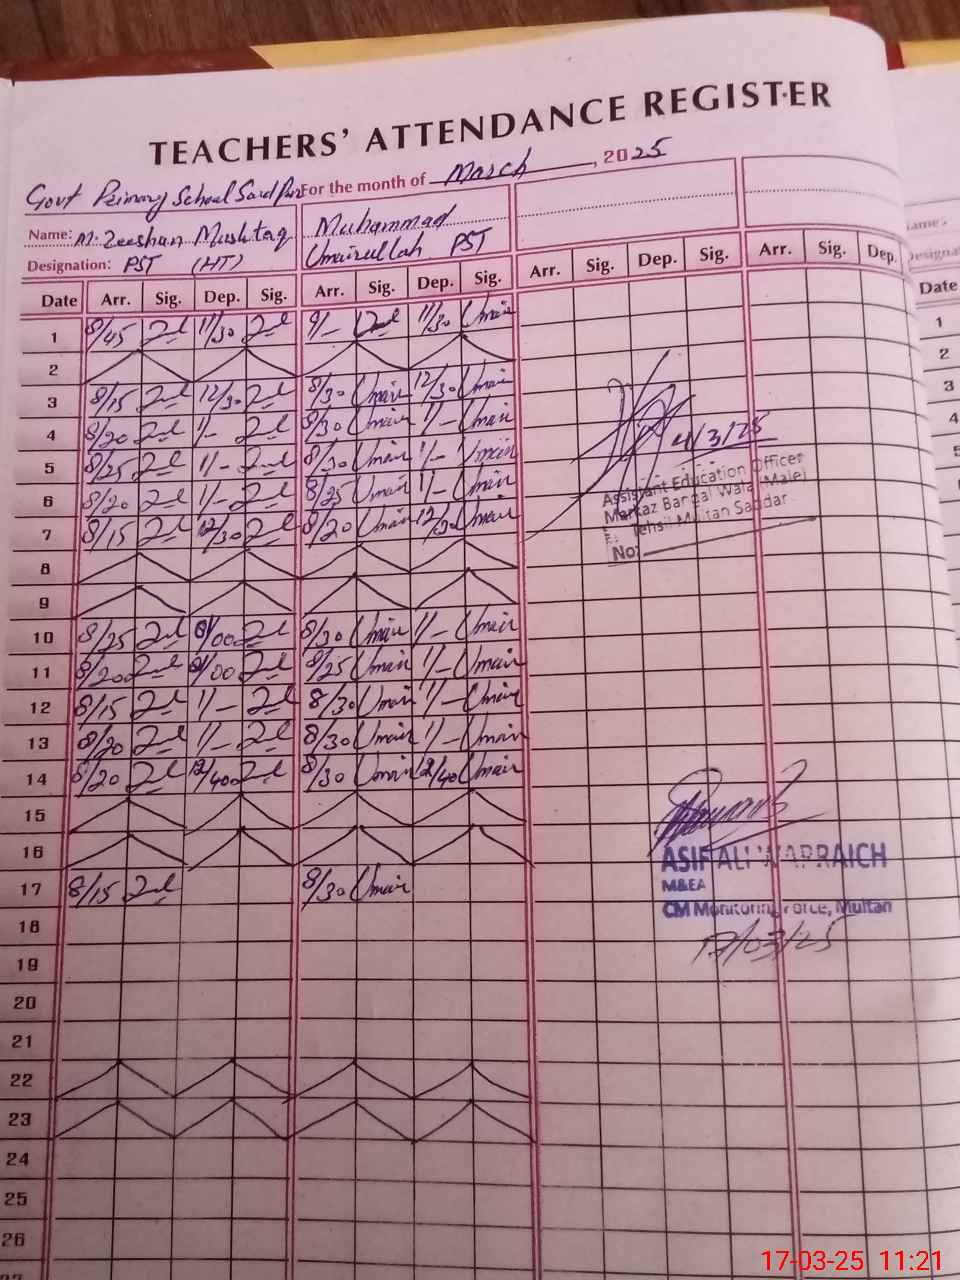 TEACHERS' ATTENDANCE REGISTER
Govt Primary School
For the month of March, 2025
Name: M. Zeeshan Mushtaq Muhammad
Designation: PST (HT) Umairullah PST
Date Arr. Sig. Dep. Sig. Arr. Sig. Dep. Sig. Arr. Sig. Dep. Sig. Arr. Sig. Dep.
1 8/45 11/30 9/- 11/30 Umair
2
3 8/15 12/30 8/30 Umair 12/30 Umair
4 8/20 1/- 8/30 Umair 1/- Umair
5 8/25 1/- 8/30 Umair 1/- Umair
6 8/20 1/- 8/25 Umair 1/- Umair
7 8/15 12/30 8/20 Umair 12/30 Umair
8
9
10 8/25 /00 8/30 Umair 1/- Umair
11 8/20 /00 8/25 Umair 1/- Umair
12 8/15 1/- 8/30 Umair 1/- Umair
13 8/20 1/- 8/30 Umair 1/- Umair
14 8/20 12/40 8/30 Umair 12/40 Umair
15
16
17 8/15 8/30 Umair
18
19
20
21
22
23
24
25
26
4/3/25
Assistant Education Officer
Markaz Bangal Wala (Male)
Tehsil Multan Saddar
No:
ASIF ALI WARRAICH
M&EA
CM Monitoring Force, Multan
17/03/25
Date
1
2
3
4
17-03-25 11:21